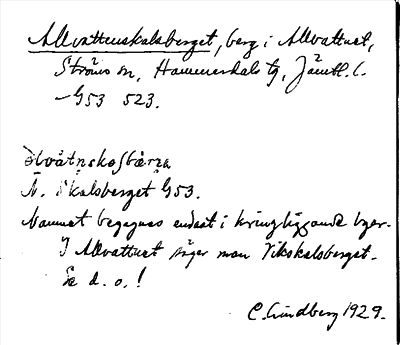 Allvattenskalsberget, berg i Allvattnet,
Ströms sn, Hammerdals tg, Jämtl. l.
G53 523.
Ä. Skalsberget G53.
Namnet begagnas endast i kringliggande byar.
I Allvattnet säger man Vikskalsberget.
Se d. o.!
C. Lindberg 1929.